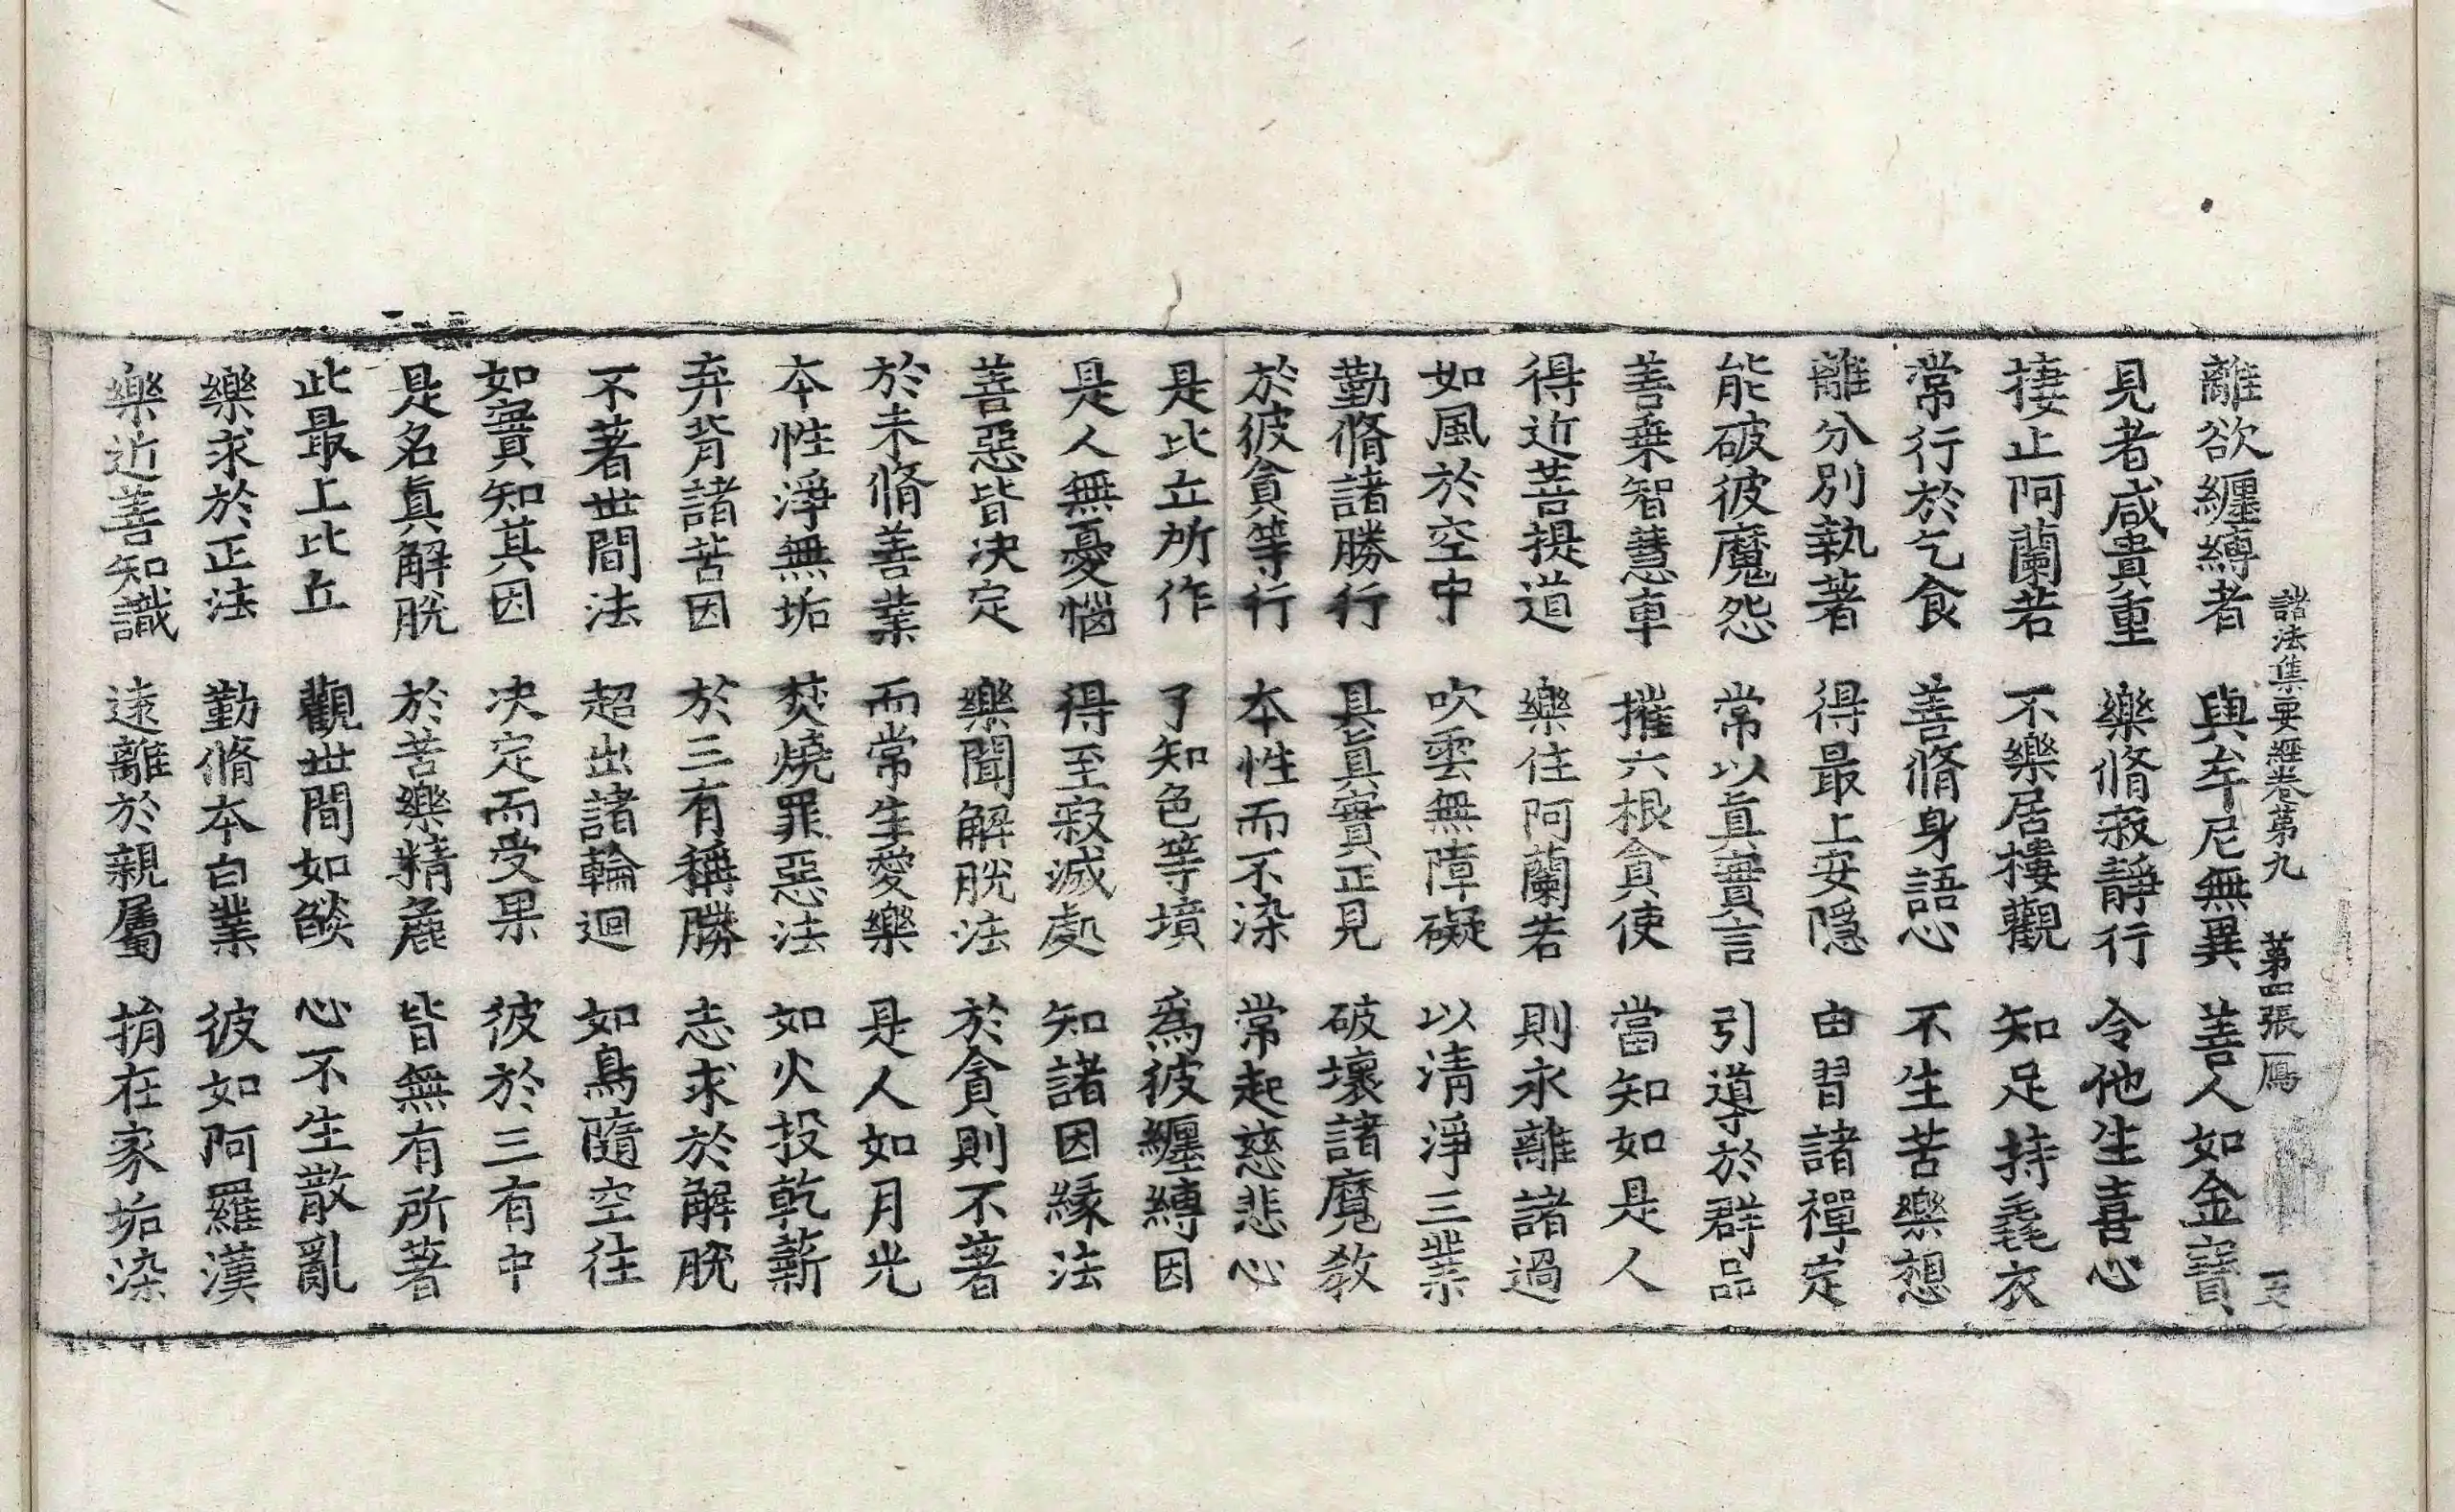 諸法集要經卷第九 第四張 鴈
離欲纏縛者 與牟尼無異 善人如金寶
見者咸貴重 樂脩寂靜行 令他生喜心
捿止阿蘭若 不樂居樓觀 知足持毳衣
常行於乞食 善脩身語心 不生苦樂想
離分別執著 得最上安隱 由習諸禪定
能破彼魔怨 常以眞實言 引導於群品
善乗智慧車 摧六根貪使 當知如是人
得近菩提道 樂住阿蘭若 則永離諸過
如風於空中 吹雲無障礙 以清淨三業
勤脩諸勝行 具眞實正見 破壞諸魔教
於彼貪等行 本性而不染 常起慈悲心
是比丘所作 了知色等境 爲彼纏縛因
是人無憂惱 得至寂滅處 知諸因緣法
善惡皆決定 樂聞解脫法 於貪則不著
於未脩善業 而常生愛樂 是人如月光
本性淨無垢 焚燒罪惡法 如火投乾薪
弃背諸苦因 於三有稱勝 志求於解脫
不著世間法 超出諸輪迴 如鳥隨空往
如實知其因 決定而受果 彼於三有中
是名眞解脫 於苦樂精麁 皆無有所著
此最上比丘 觀世間如燄 心不生散亂
樂求於正法 勤脩本白業 彼如阿羅漢
樂近善知識 遠離於親屬 捐在家垢染